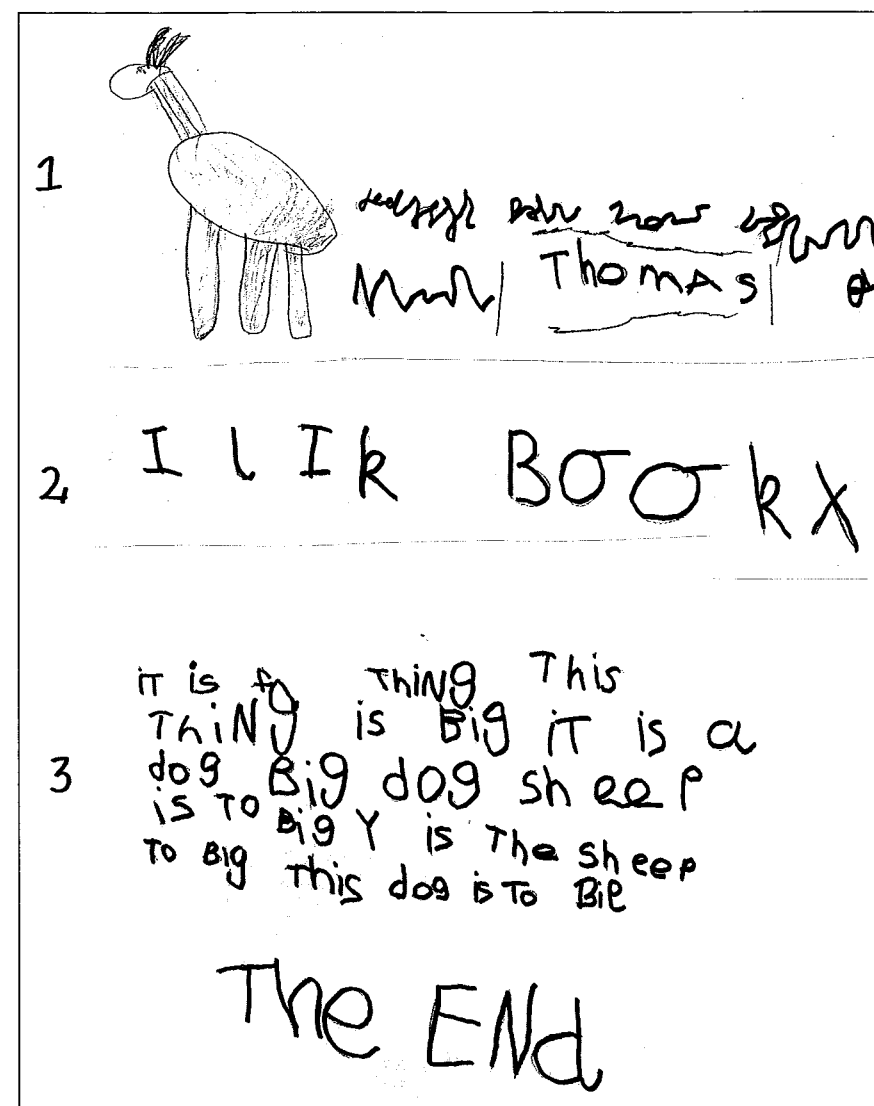 1
ThomAs
2 I l I k Bookx
iT is ThiNg This
ThiNg is Big iT is a
3 dog Big dog sheep
is To Big Y is The sheep
To Big This dog is To Bie
The ENd